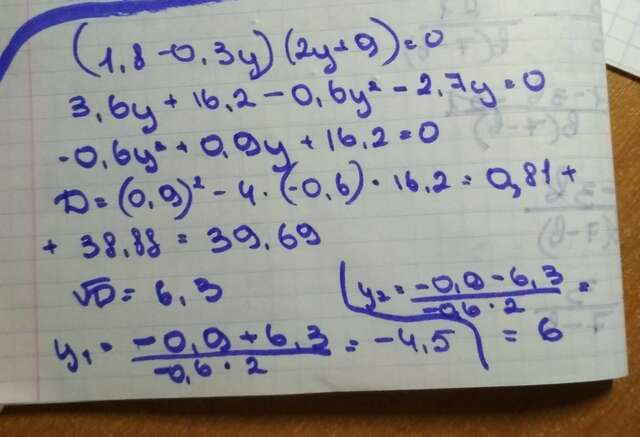 (1,8 - 0,3y)(2y+9)=0
3,6y + 16,2 - 0,6y² - 2,7y = 0
-0,6y² + 0,9y + 16,2 = 0
D = (0,9)² - 4 · (-0,6) · 16,2 = 0,81 +
+ 38,88 = 39,69
√D = 6,3
y₁ = (-0,9 + 6,3)/(-0,6 · 2) = -4,5
y₂ = (-0,9 - 6,3)/(-0,6 · 2) =
= 6